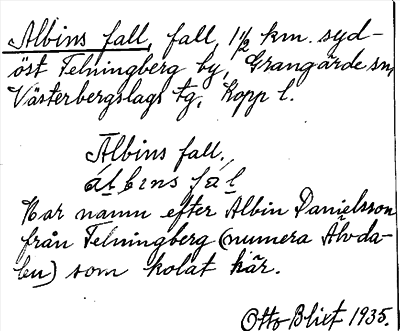 Albins fall, fall, 1 1/2 km. syd-
ost Telningberg by, Grangärde sn,
Västerbergslags tg, Kopp l.
Albins fall,
álbɩns fál
Har namn efter Albin Danielsson
från Telningberg (numera Alvda-
len) som kolat här.
Otto Blixt 1935.